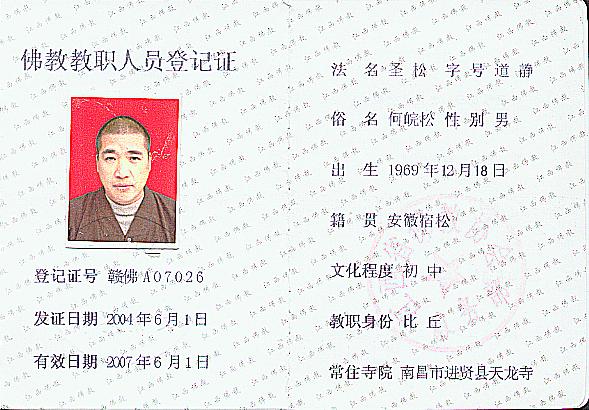 佛教教职人员登记证
登记证号 赣佛A07026
发证日期 2004年6月1日
有效日期 2007年6月1日
法 名 圣松 字号 道静
俗 名 何皖松 性别 男
出 生 1969年12月18日
籍 贯 安徽宿松
文化程度 初中
教职身份 比丘
常住寺院 南昌市进贤县天龙寺